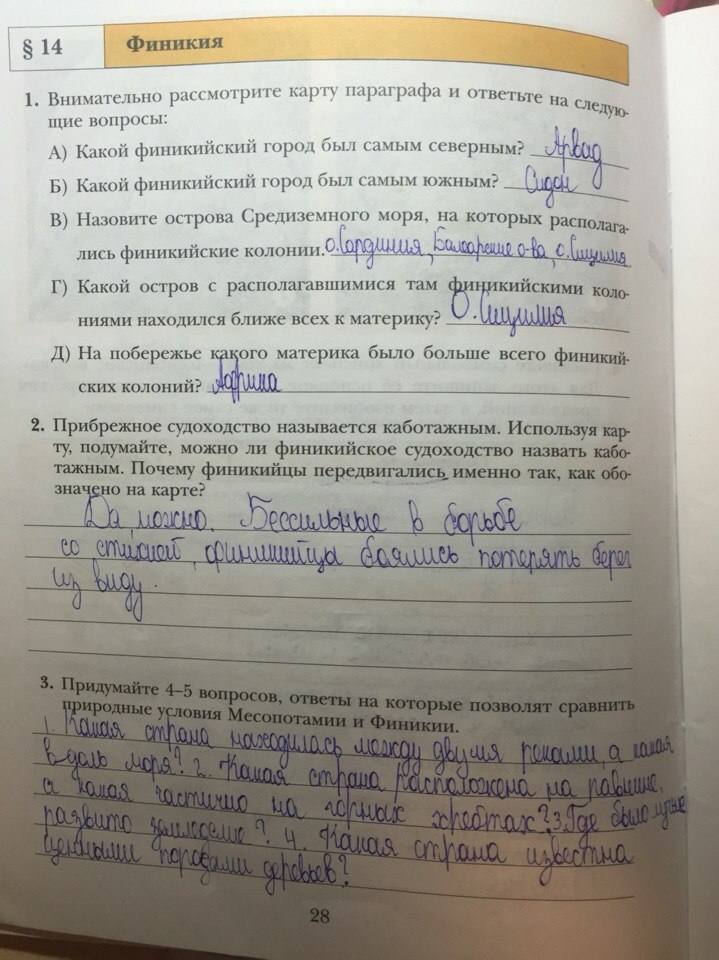 § 14 Финикия
1. Внимательно рассмотрите карту параграфа и ответьте на следую-
щие вопросы:
А) Какой финикийский город был самым северным? Арвад
Б) Какой финикийский город был самым южным? Сидон
В) Назовите острова Средиземного моря, на которых располага-
лись финикийские колонии. О. Сардиния, Балеарские о-ва, о. Сицилия
Г) Какой остров с располагавшимися там финикийскими коло-
ниями находился ближе всех к материку? О. Сицилия
Д) На побережье какого материка было больше всего финикий-
ских колоний? Африка
2. Прибрежное судоходство называется каботажным. Используя кар-
ту, подумайте, можно ли финикийское судоходство назвать кабо-
тажным. Почему финикийцы передвигались именно так, как обо-
значено на карте?
Да, можно. Бессильные в борьбе
со стихией, финикийцы боялись потерять берег
из виду.
3. Придумайте 4–5 вопросов, ответы на которые позволят сравнить
природные условия Месопотамии и Финикии.
1. Какая страна находилась между двумя реками, а какая
вдоль моря? 2. Какая страна расположена на равнине,
а какая частично на горных хребтах? 3. Где было лучше
развито земледелие? 4. Какая страна известна
ценными породами деревьев?
28